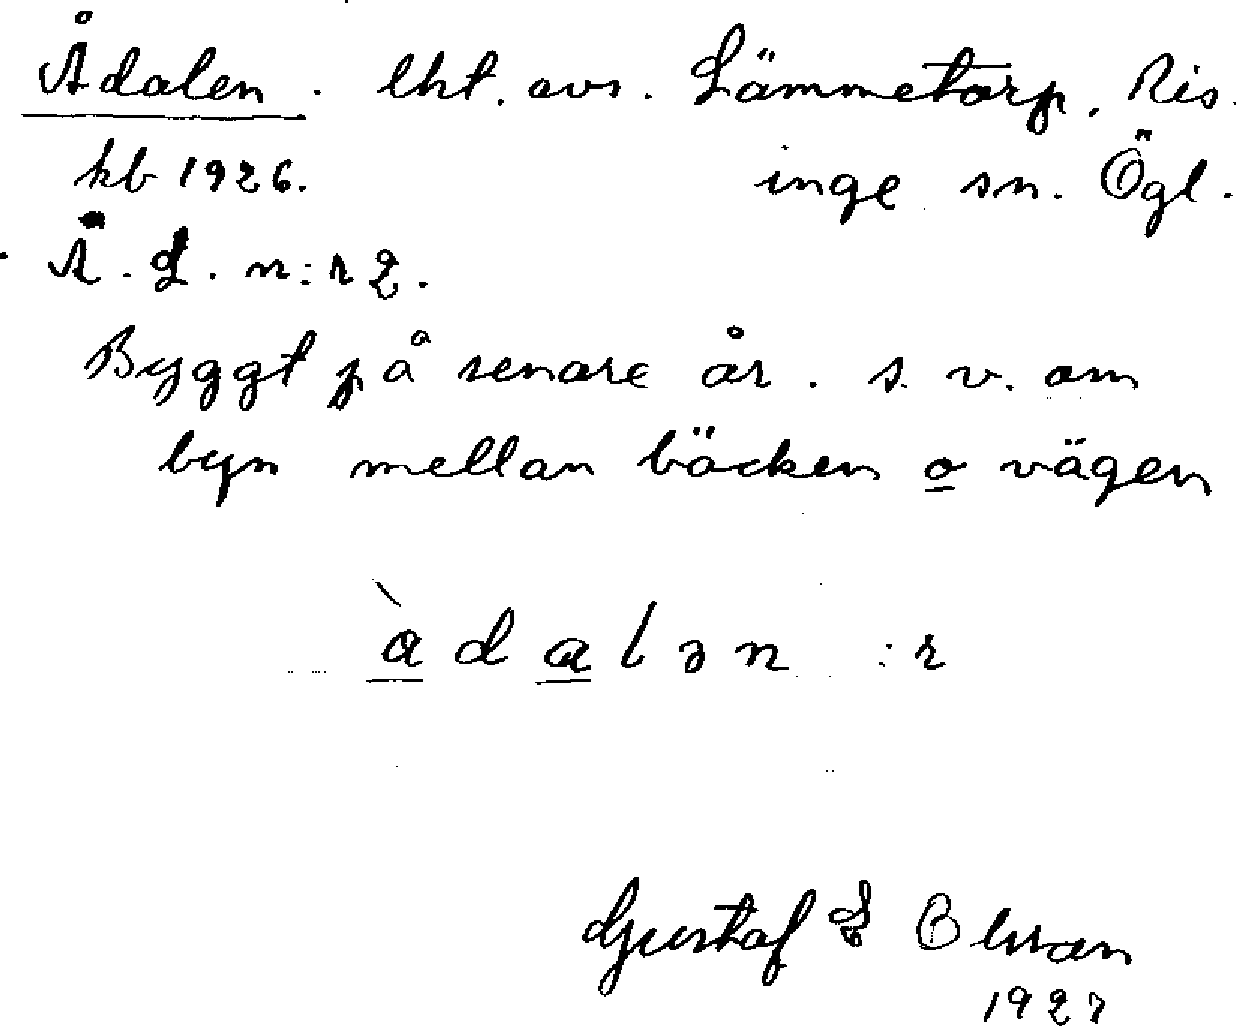 Ådalen. lht. avs. Lämmetorp, Ris
kb 1926. inge sn. Ögl.
Ä. L. n:r 2.
Byggt på senare år. s. v. om
byn mellan bäcken o vägen
àdalən :r
Gustaf E Olsson
1927